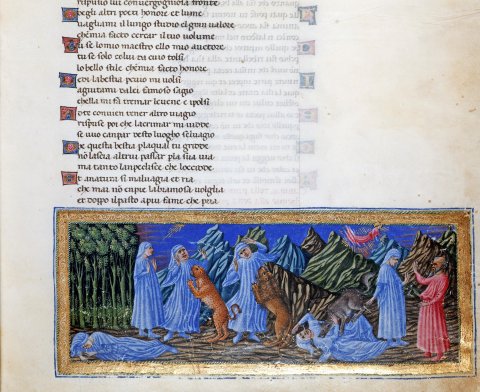 rispuosi lui con vergognosa fronte
Degli altri poeti honore et lume
vagliami illungo studio elgran valore
chēmia facto cercar il tuo volume
Tu se lomio maestro ello mio auctore
tu se solo celui da cuio tolsi
lo bello stile chēmia facto honore
Vedi labestia percui mi volsi
agiutami dalei famoso sagio
chella mi fa tremar levene e ipolsi
A te convien tener altro viagio
rispose poi che lacrimar mi vidde
se vuo canpar desto luogho selvagio
Che questa bestia plaqual tu gridde
nō lascia altrui passar pla sua via
ma tanto lanpedisce che loccidde
Et a natura si malvagia et ria
che mai nō enpie labramosa voglia
et dopo ilpasto apiu fame che pria